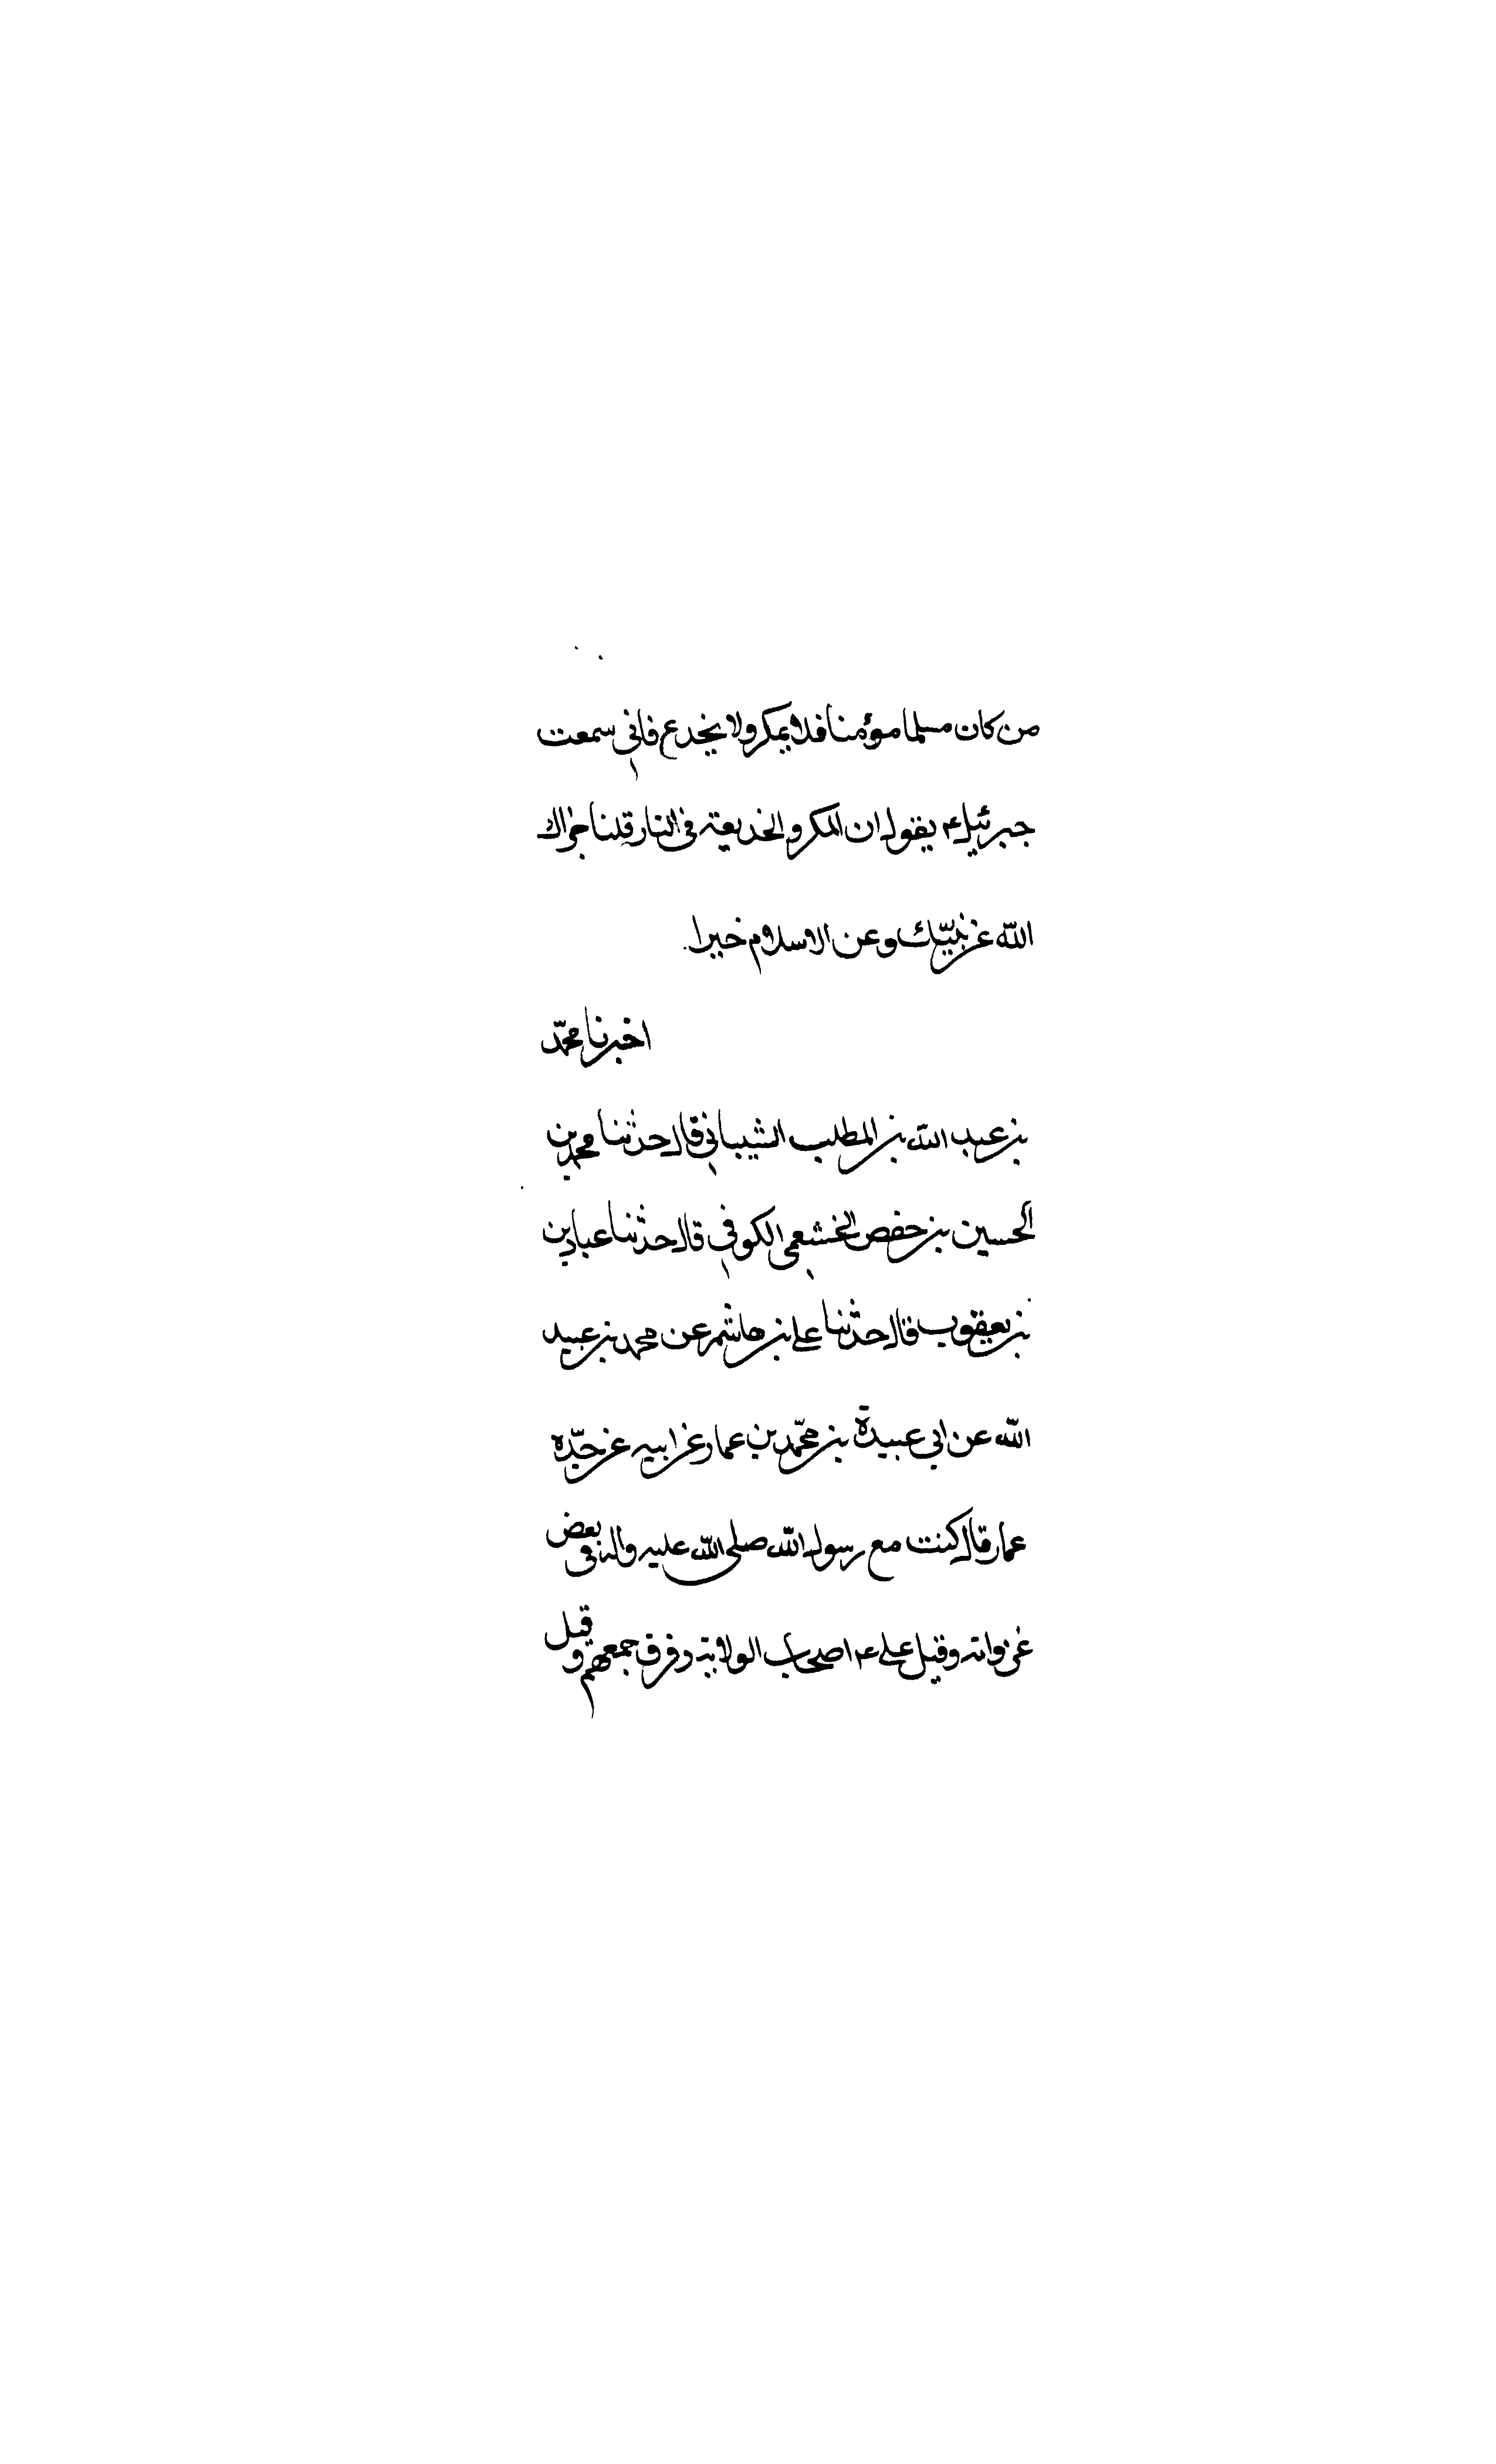 من كان مسلما مؤمنا فلا يمكر ولا يخدع فاني سمعت
جبرئيل ع يقول ان المكر والخديعة في النار قلنا جزاك
الله عن نبيّك وعن الاسلام خيرا
اخبرنا محمّد
بن عبد الله بن المطلب الشيباني قال حدثنا محمد بن
الحسين بن حفص الخشعمي الكوفي قال حدثنا عباد بن
بن يعقوب قال حدثنا علي بن هاشم عن محمد بن عبيد
الله عن ابي عبيدة بن محمّد بن عمار عن ابيه عن جدّه
عمار قال كنت مع رسول الله صلى الله عليه واله في بعض
غزواته وقتل علي ع اصحاب الولاية وفرق جمعهم وقتل